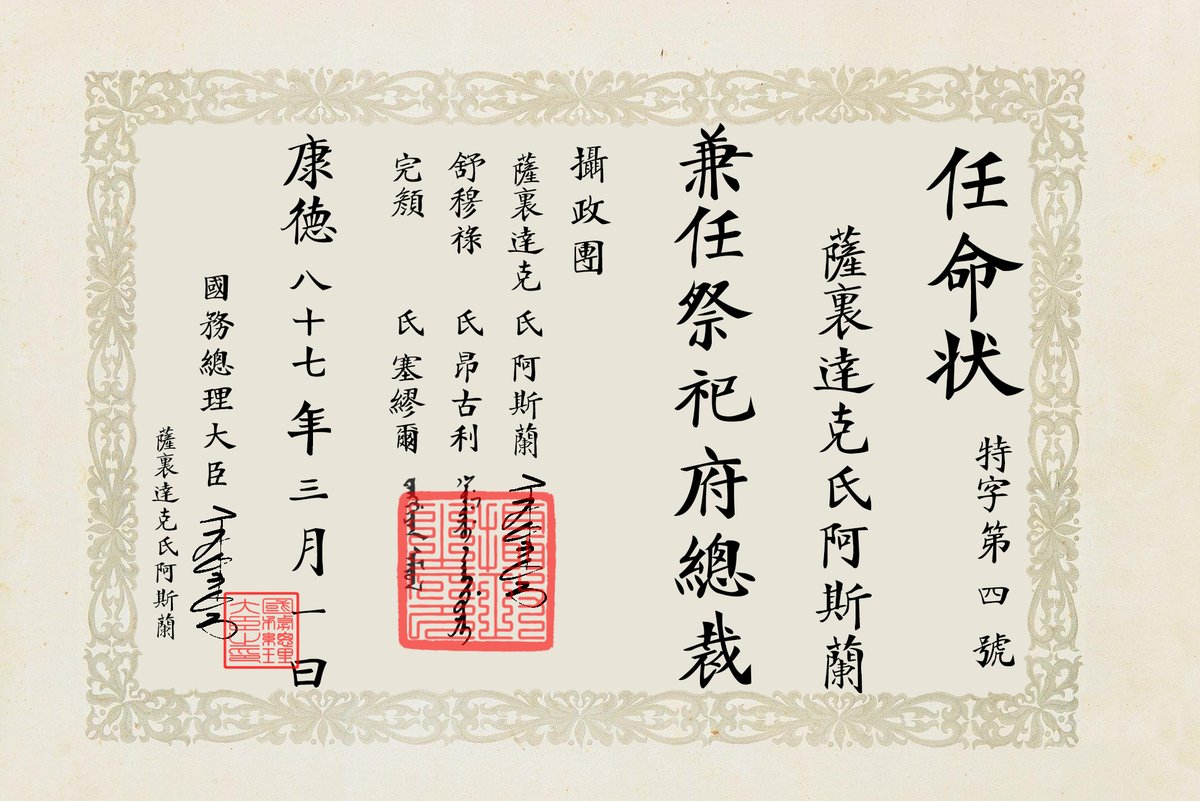 任命状
特字第四號
薩裏達克氏阿斯蘭
兼任祭祀府總裁
攝政團
薩裏達克 氏 阿斯蘭
舒穆祿 氏 昂古利
完顏 氏 塞繆爾
康德八十七年三月一日
國務總理大臣
薩裏達克氏阿斯蘭